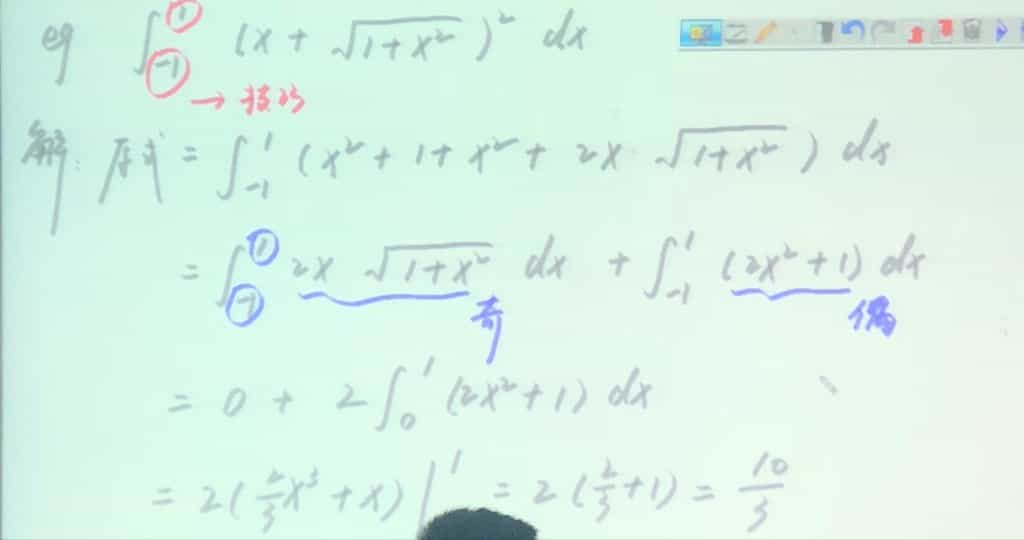 eg ∫_{-1}^{1} (x + √(1+x²))² dx
→ 技巧
解: 原式 = ∫_{-1}^{1} (x² + 1 + x² + 2x √(1+x²)) dx
= ∫_{-1}^{1} 2x √(1+x²) dx + ∫_{-1}^{1} (2x² + 1) dx
奇 偶
= 0 + 2∫_{0}^{1} (2x² + 1) dx
= 2(2/3 x³ + x) |^{1} = 2(2/3 + 1) = 10/3